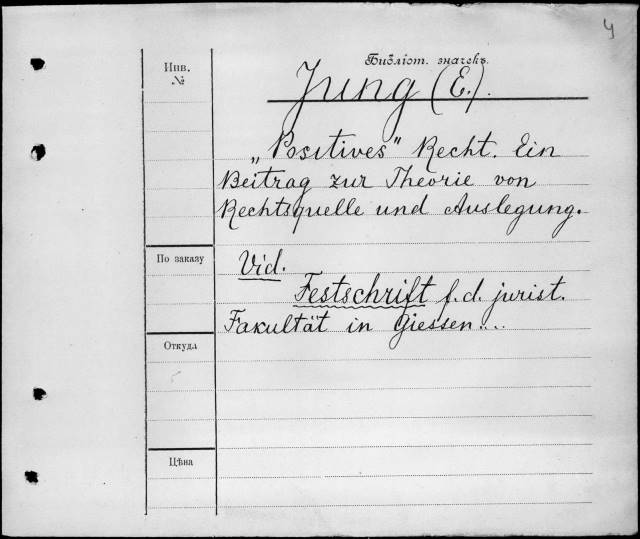 4
Инв.
№
Библіот. значекъ.
Jung (E.).
„Positives" Recht. Ein
Beitrag zur Theorie von
Rechtsquelle und Auslegung.
По заказу
Vid.
Festschrift f. d. jurist.
Fakultät in Giessen...
Откуда
Цѣна